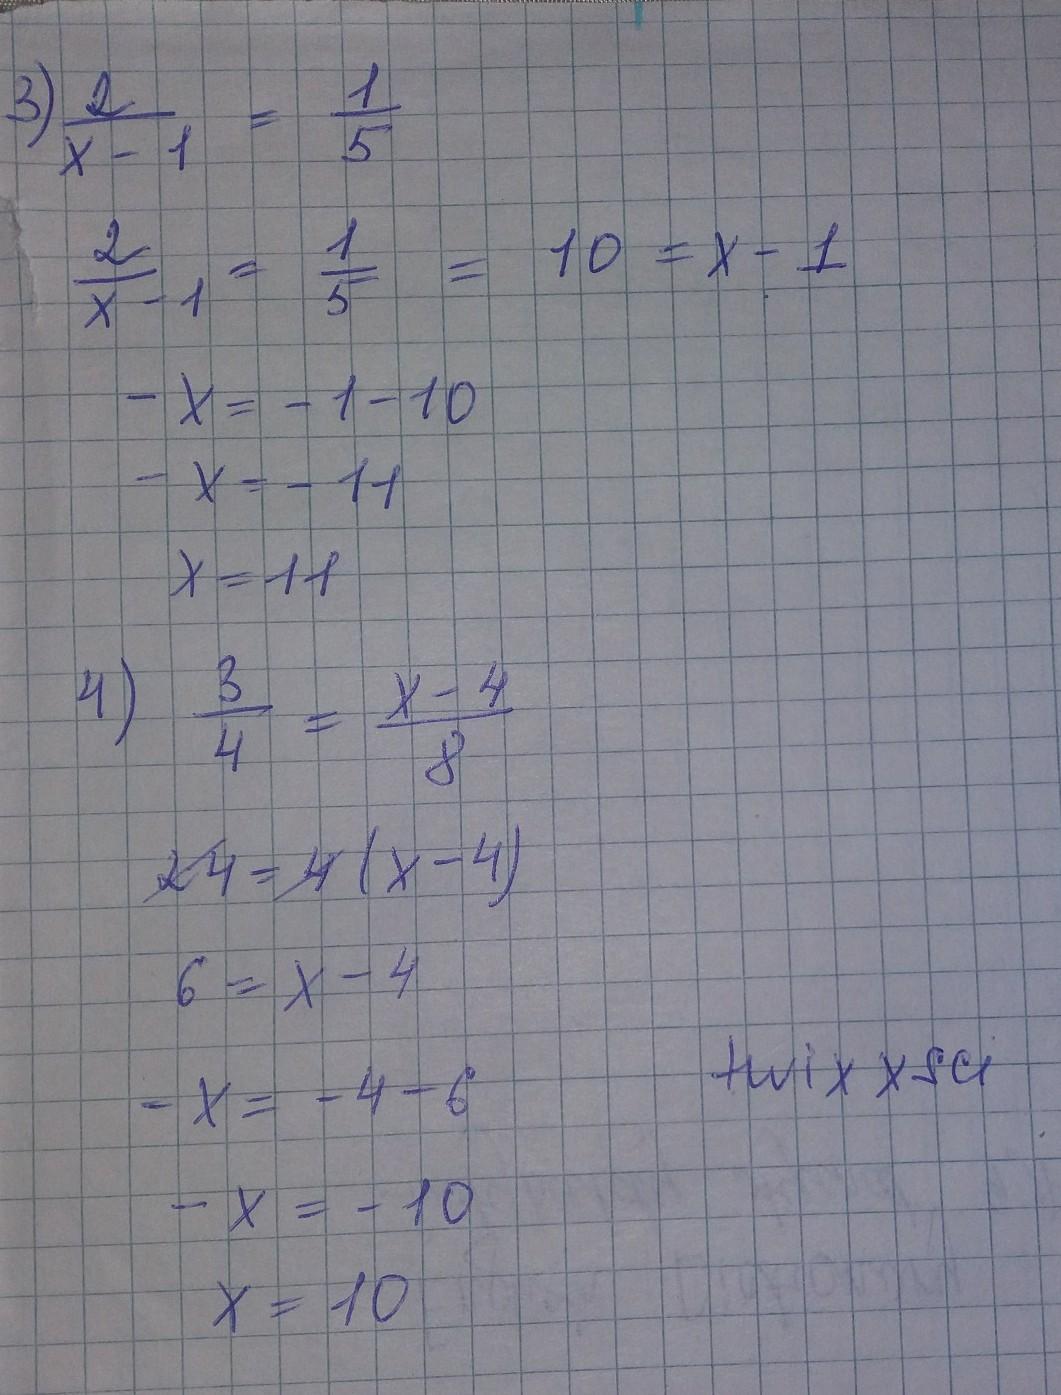 3) 2/(x - 1) = 1/5
2/(x - 1) = 1/5 = 10 = x - 1
- x = - 1 - 10
- x = - 11
x = 11
4) 3/4 = (x - 4)/8
24 = 4 (x - 4)
6 = x - 4
- x = - 4 - 6
twixxsa
- x = - 10
x = 10